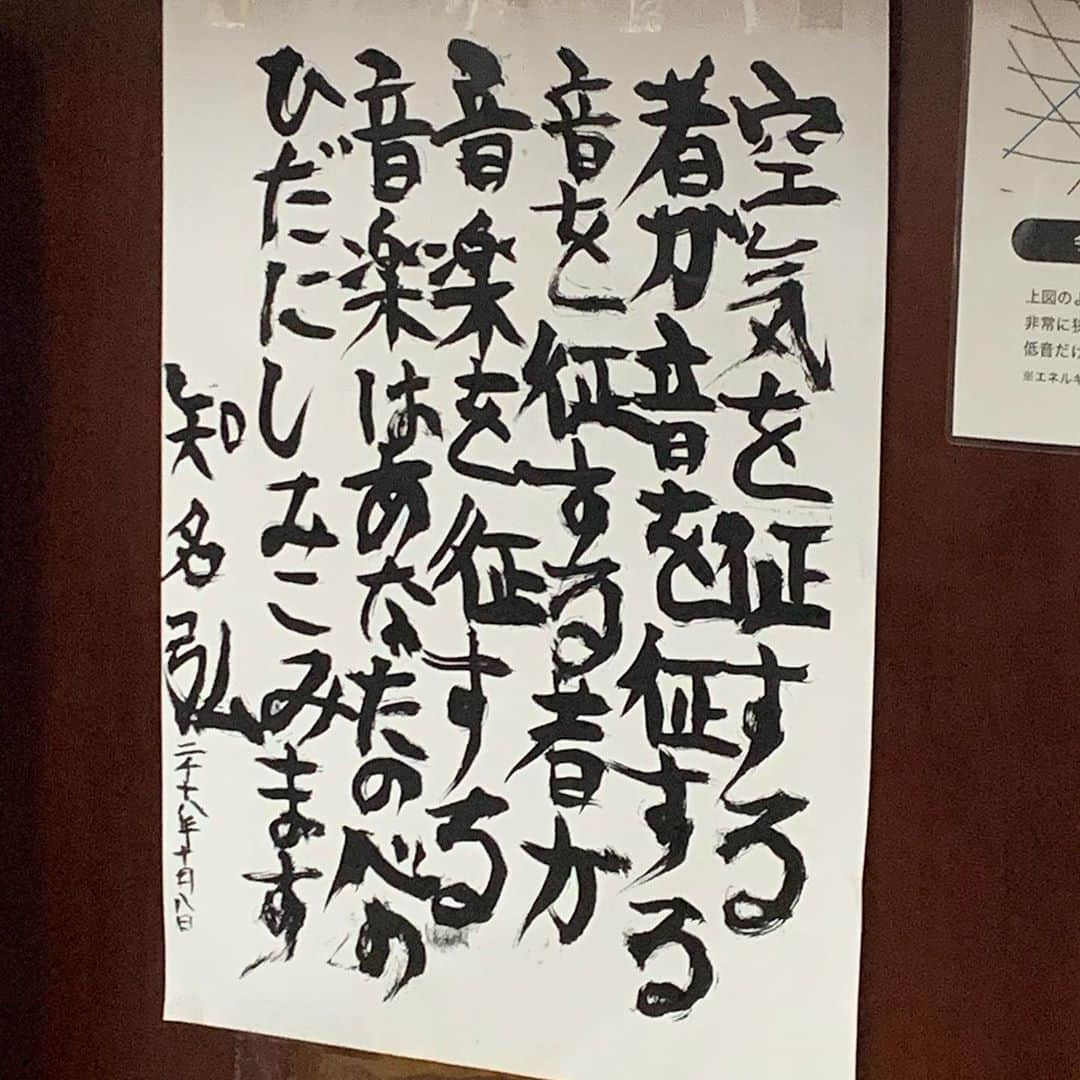 空気を征する
者が音を征する
音を征する者が
音楽を征する
音楽はあなたのべの
ひだにしみこみます
知名弘
二千十八年十月八日
上図のよ
非常に狭
低音だけ
※エネルギ